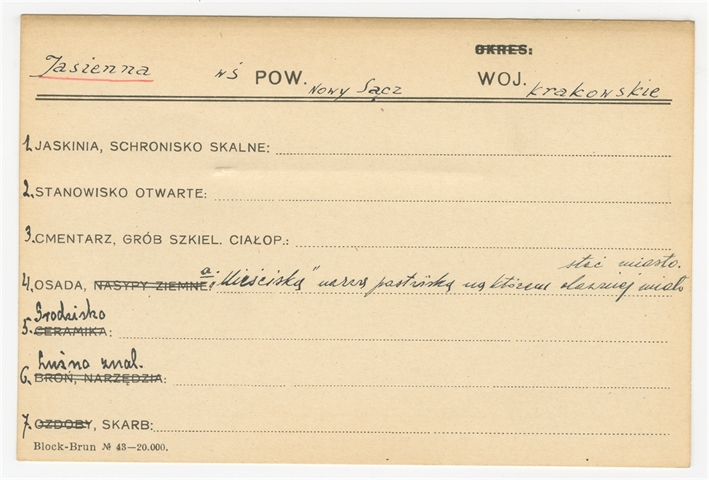 OKRES:
Jasienna wś POW. Nowy Sącz WOJ. Krakowskie
1. JASKINIA, SCHRONISKO SKALNE:
2. STANOWISKO OTWARTE:
3. CMENTARZ, GRÓB SZKIEL. CIAŁOP.:
stać miasto.
4. OSADA, NASYPY ZIEMNE: a. "Mieściska" na którem dawniej miało
Grodzisko
5. CERAMIKA:
Luźno znal.
6. BROŃ, NARZĘDZIA:
7. OZDOBY, SKARB:
Block-Brun № 43—20.000.